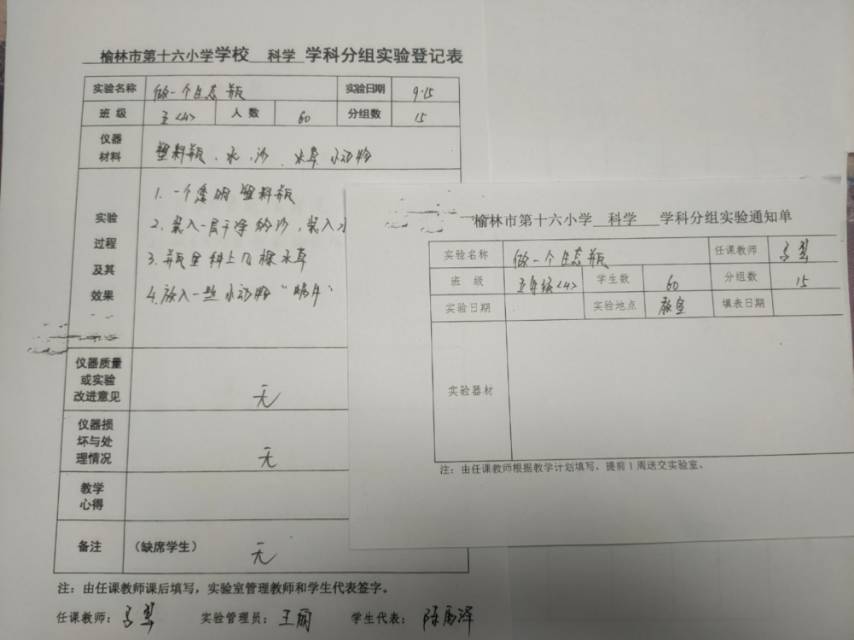 榆林市第十六小学学校 科学 学科分组实验登记表
实验名称 做一个生态瓶 实验日期 9.15
班级 五<4> 人数 60 分组数 15
仪器材料 塑料瓶、水、沙、水草 小动物
实验过程及其效果
1. 一个透明塑料瓶
2. 装入一层干净的沙，装入水
3. 瓶里种上几棵水草
4. 放入一些小动物
仪器质量或实验改进意见 无
仪器损坏与处理情况 无
教学心得
备注 (缺席学生) 无
注：由任课教师课后填写，实验室管理教师和学生代表签字。
任课教师： 实验管理员：王丽 学生代表：
榆林市第十六小学 科学 学科分组实验通知单
实验名称 做一个生态瓶 任课教师
班级 五年级<4> 学生数 60 分组数 15
实验日期 实验地点 教室 填表日期
实验器材
注：由任课教师根据教学计划填写，提前1周送交实验室。